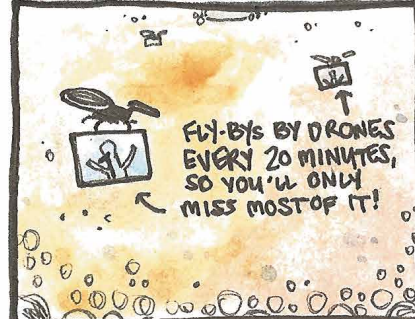 FLY-BYS BY DRONES
EVERY 20 MINUTES,
SO YOU'LL ONLY
MISS MOST OF IT!